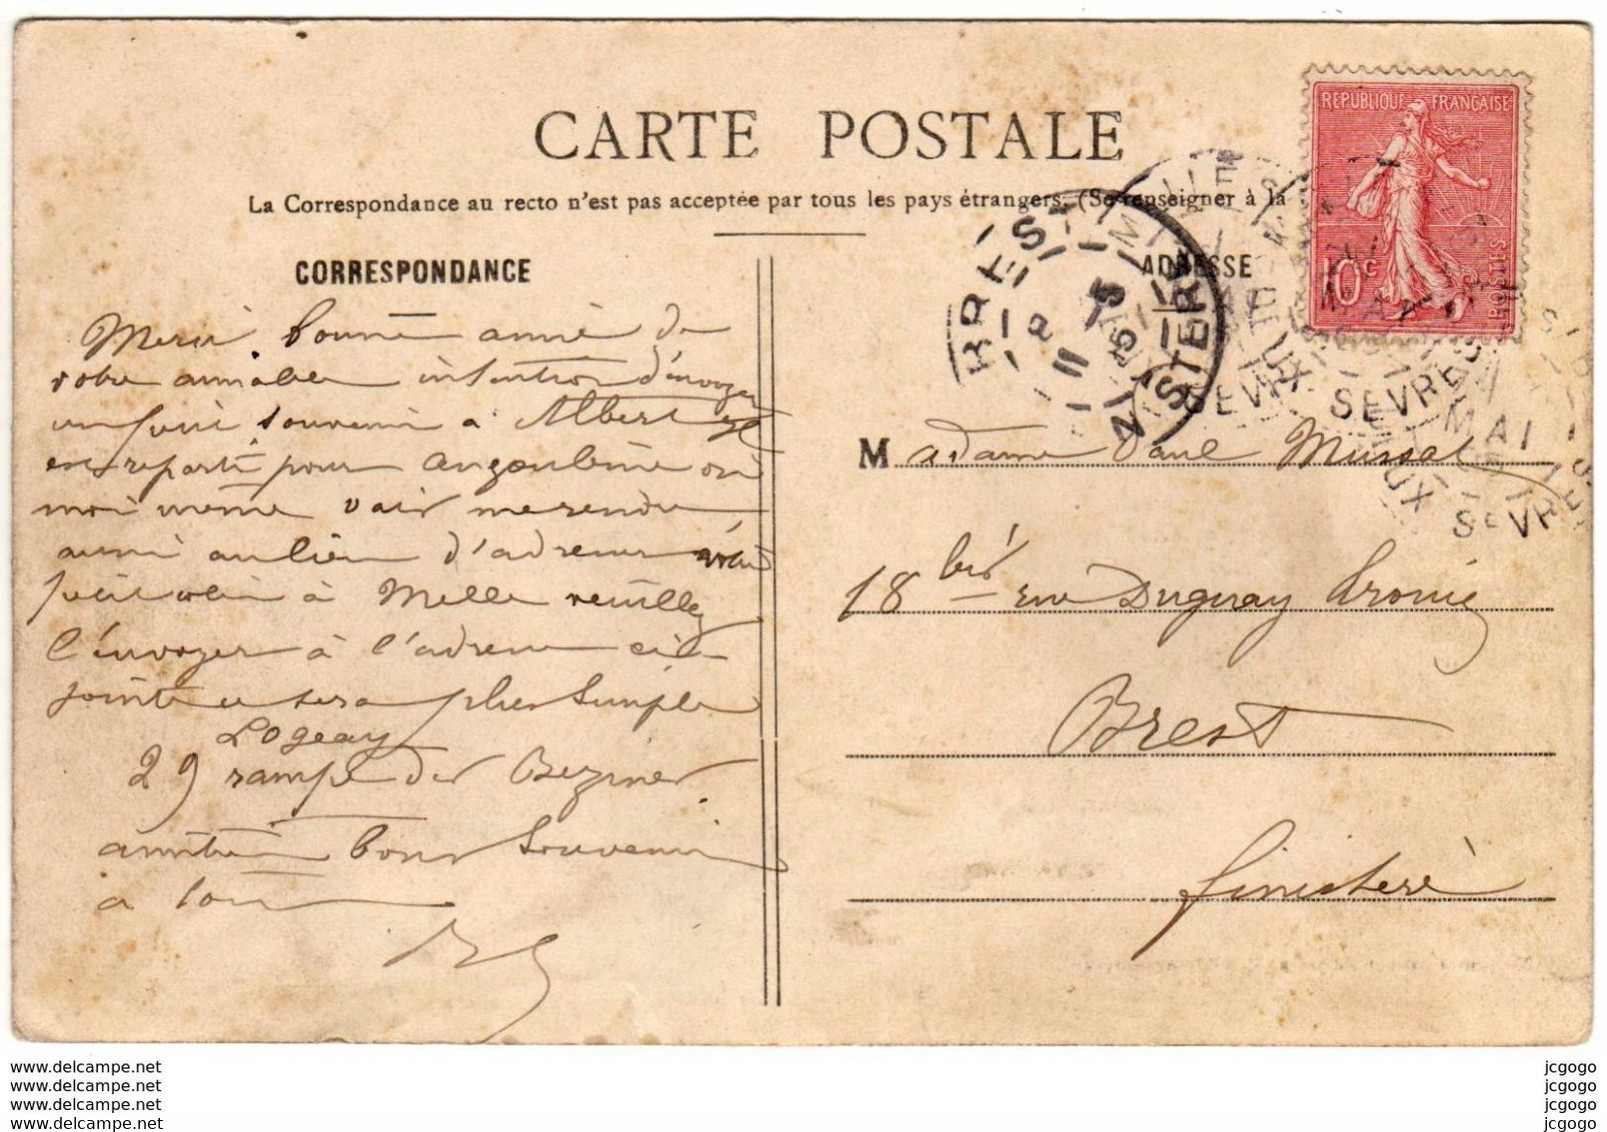 CARTE POSTALE
La Correspondance au recto n'est pas acceptée par tous les pays étrangers. (Se renseigner à la
CORRESPONDANCE
Merci bonne amie de
votre aimable intention d'envoyer
un petit souvenir à Albert il
est reparti pour Angoulême où
moi même vais me rendre
aussi au lieu d'adresser votre
petit colis à Melle veuillez
l'envoyer à l'adresse ci-
jointe ce sera plus simple
Logeay
29 rampe de Bezines
amitiés bons souvenirs
à tous
ADRESSE
Madame Paul Mussat
18 bis rue Duguay Trouin
Brest
Finistère
REPUBLIQUE FRANÇAISE
10c
POSTES
BREST
FINISTERE
DEUX SEVRES
MAI
SEVRES
www.delcampe.net
www.delcampe.net
www.delcampe.net
www.delcampe.net
jcgogo
jcgogo
jcgogo
jcgogo